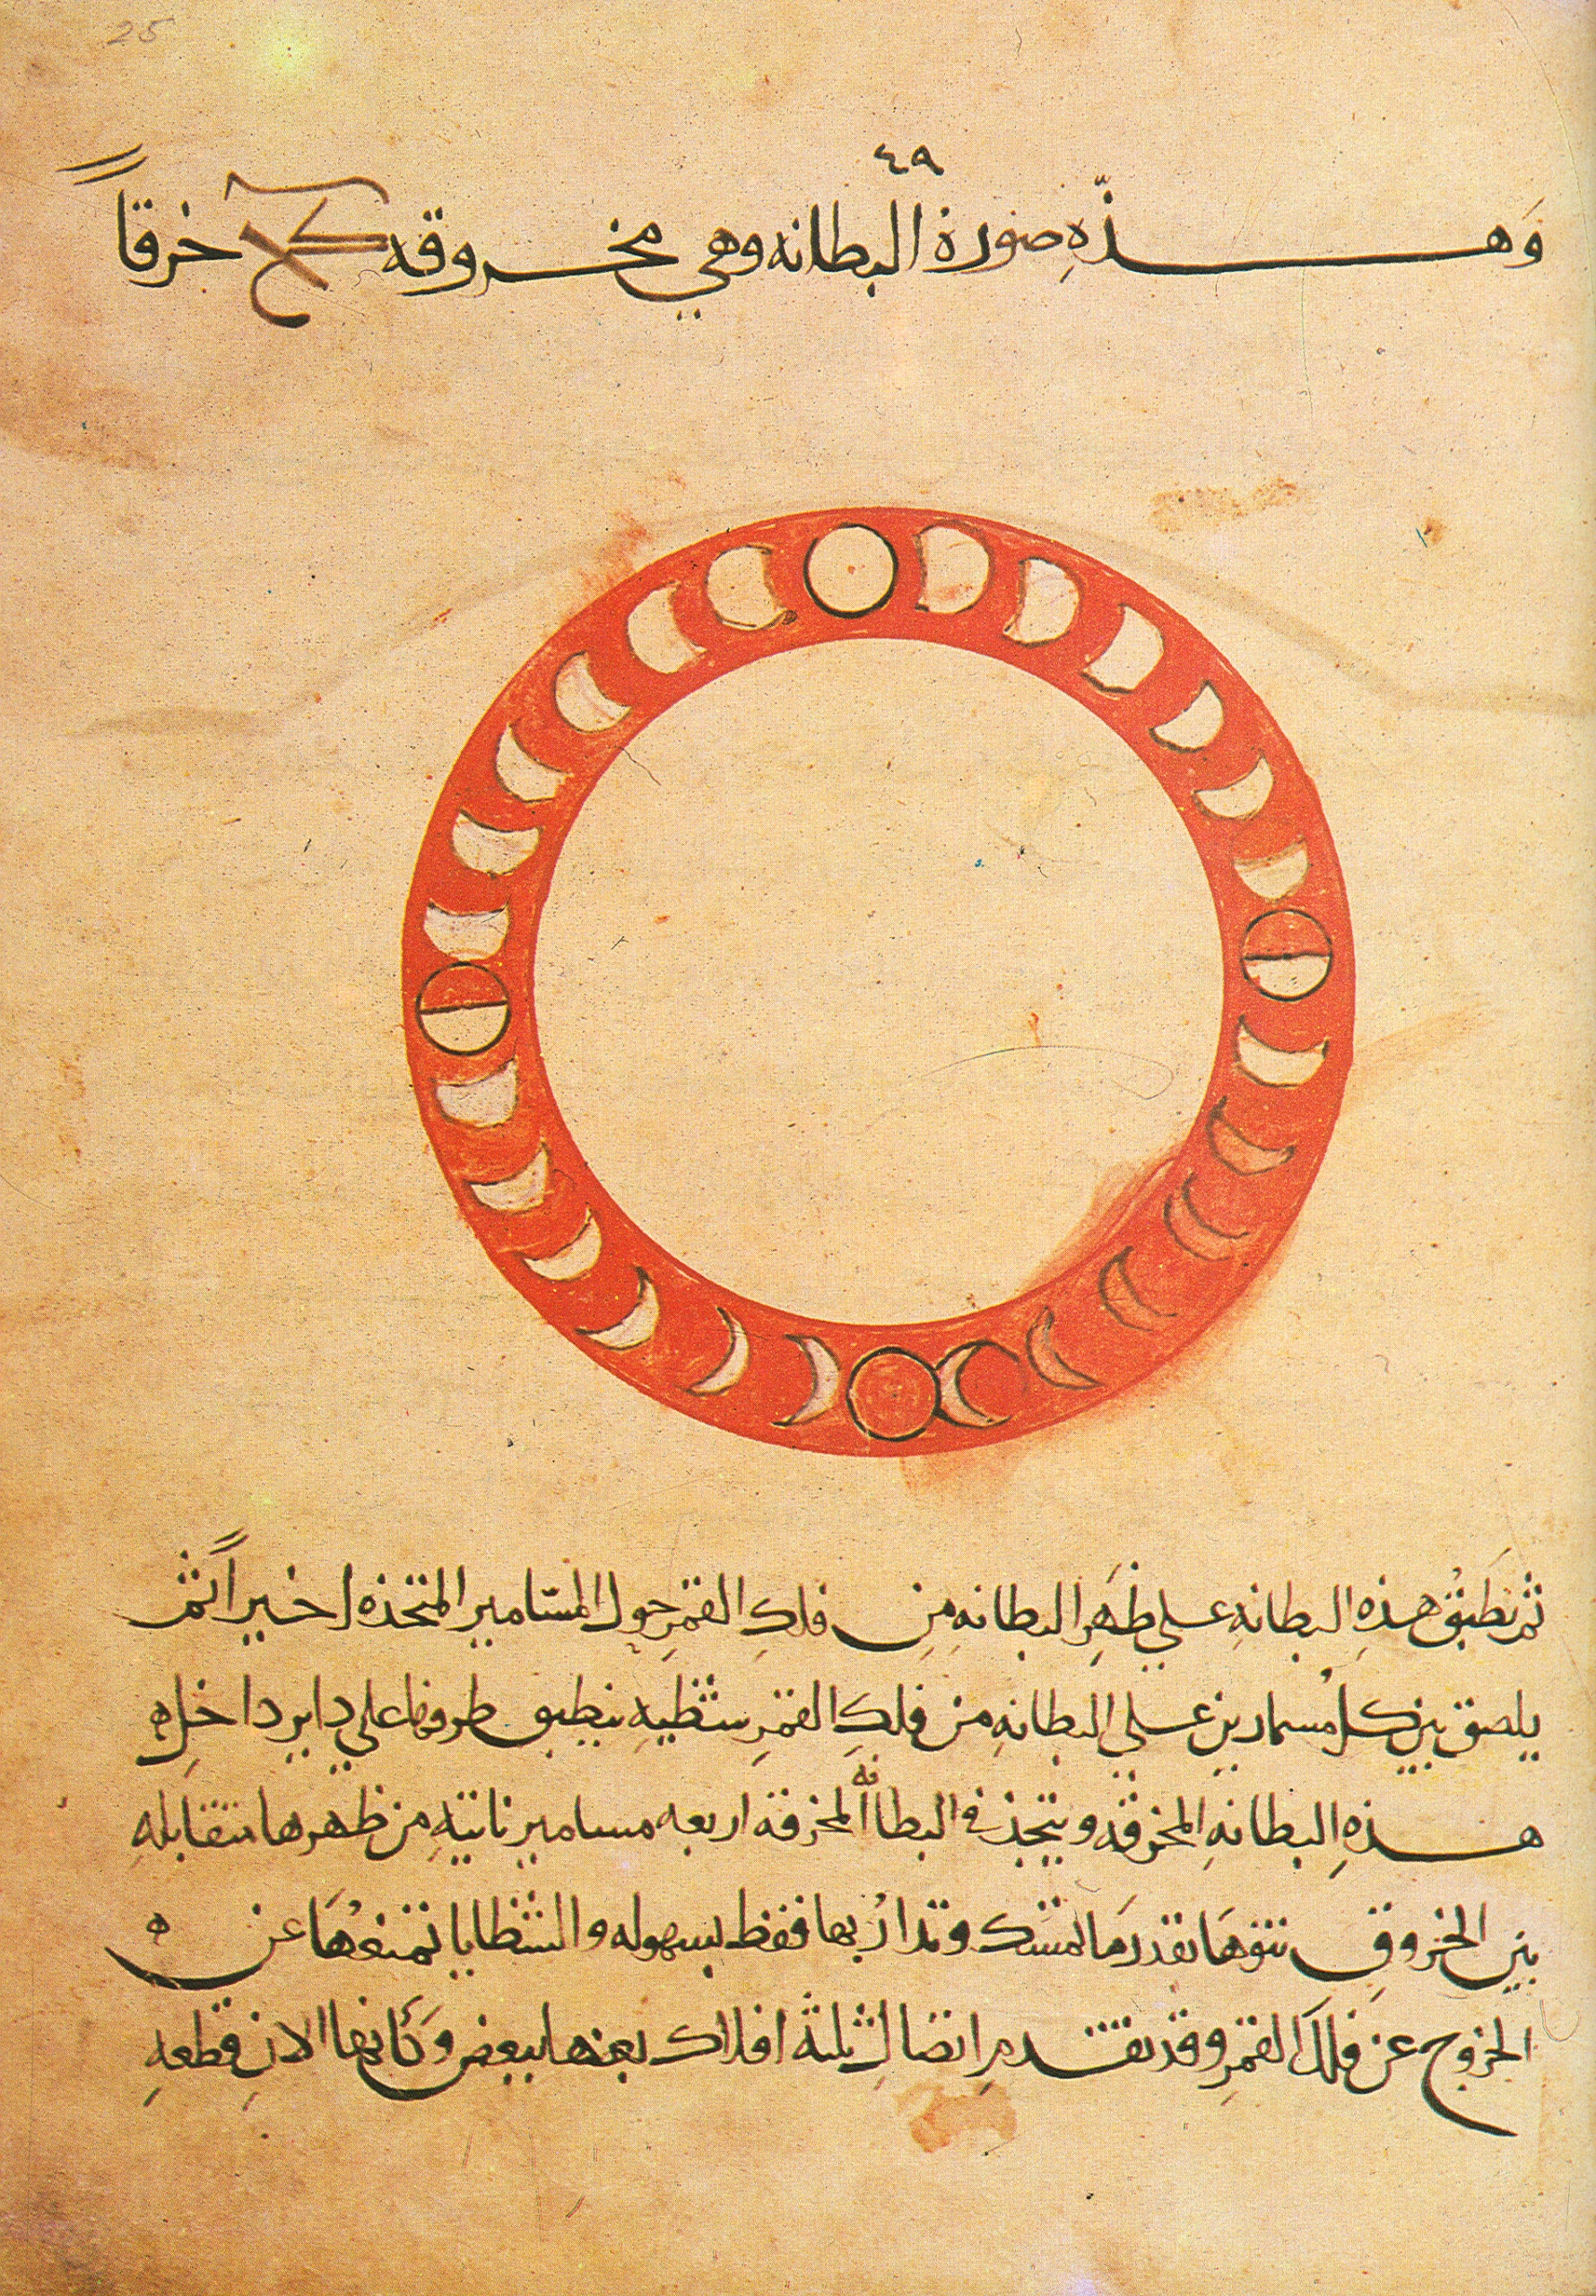 25
٤٩
وهذه صورة البطانه وهي مخروقه كح خرقاً
ثم تطبق هذه البطانه علي ظهر البطانه من فلك القمر حول المسامير المتخذه اخيراً ثم
يلصق بين كل مسمارين علي البطانه من فلك القمر شظيه ينطبق طرفها علي داير داخل
هذه البطانه المخرقه ويتخذ في البطانه المخرقه اربعه مسامير ناتيه من ظهرها متقابله
بين الخروق نتوها بقدر ما تمسك وتدار بها فقط بسهوله والشظايا تمنعها عن
الخروج عن فلك القمر وقد تقدم اتصال ثلثة افلاك بعضها ببعض وكانها الان قطعه